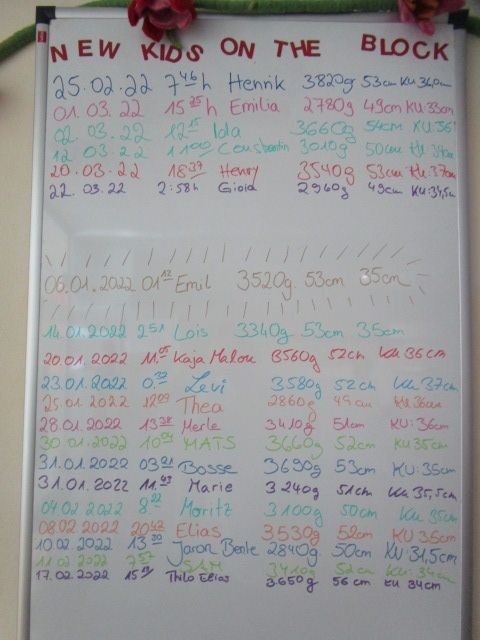 NEW KIDS ON THE BLOCK
25.02.22 7 46 h Henrik 3820g 53cm KU 36,0cm
01.03.22 15 25 h Emilia 2780g 49cm KU:33cm
02.03.22 12 15 Ida 3660g 54cm KU:36
12.03.22 11 00 Constantin 3010g 50cm KU 34cm
20.03.22 18 37 Henry 3540g 53cm KU:37cm
22.03.22 2:58h Gioia 2960g 49cm KU:34,5cm
06.01.2022 01 12 Emil 3520g 53cm 35cm
14.01.2022 2 51 Lois 3340g 53cm 35cm
20.01.2022 11 05 Kaja Malou 3560g 52cm KU 36cm
23.01.2022 0 32 Levi 3580g 52cm KU 37cm
25.01.2022 12 09 Thea 2860g 49cm KU 36cm
28.01.2022 13 38 Merle 3410g 51cm KU: 36cm
30.01.2022 10 04 MATS 3660g 52cm KU 35cm
31.01.2022 03 21 Bosse 3690g 53cm KU: 36cm
31.01.2022 11 43 Marie 3240g 51cm KU 35,5cm
04.02.2022 8 22 Moritz 3100g 50cm KU 35cm
08.02.2022 20 42 Elias 3530g 52cm KU 36cm
10.02.2022 13 30 Jaron Bente 2840g 50cm KU 31,5cm
11.02.2022 7 57 SAM 3410g 52cm KU: 34cm
17.02.2022 15 Thilo Elias 3.650g 56cm KU 34cm